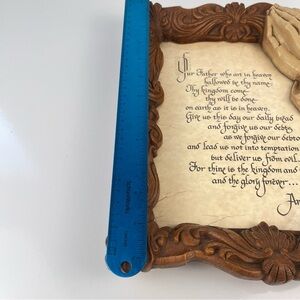 Our Father who art in heaven
hallowed be thy name
Thy kingdom come
thy will be done
on earth as it is in heaven.
Give us this day our daily bread
and forgive us our debts
as we forgive our debto
and lead us not into temptation
but deliver us from evil...
For thine is the kingdom and
and the glory forever...
Am